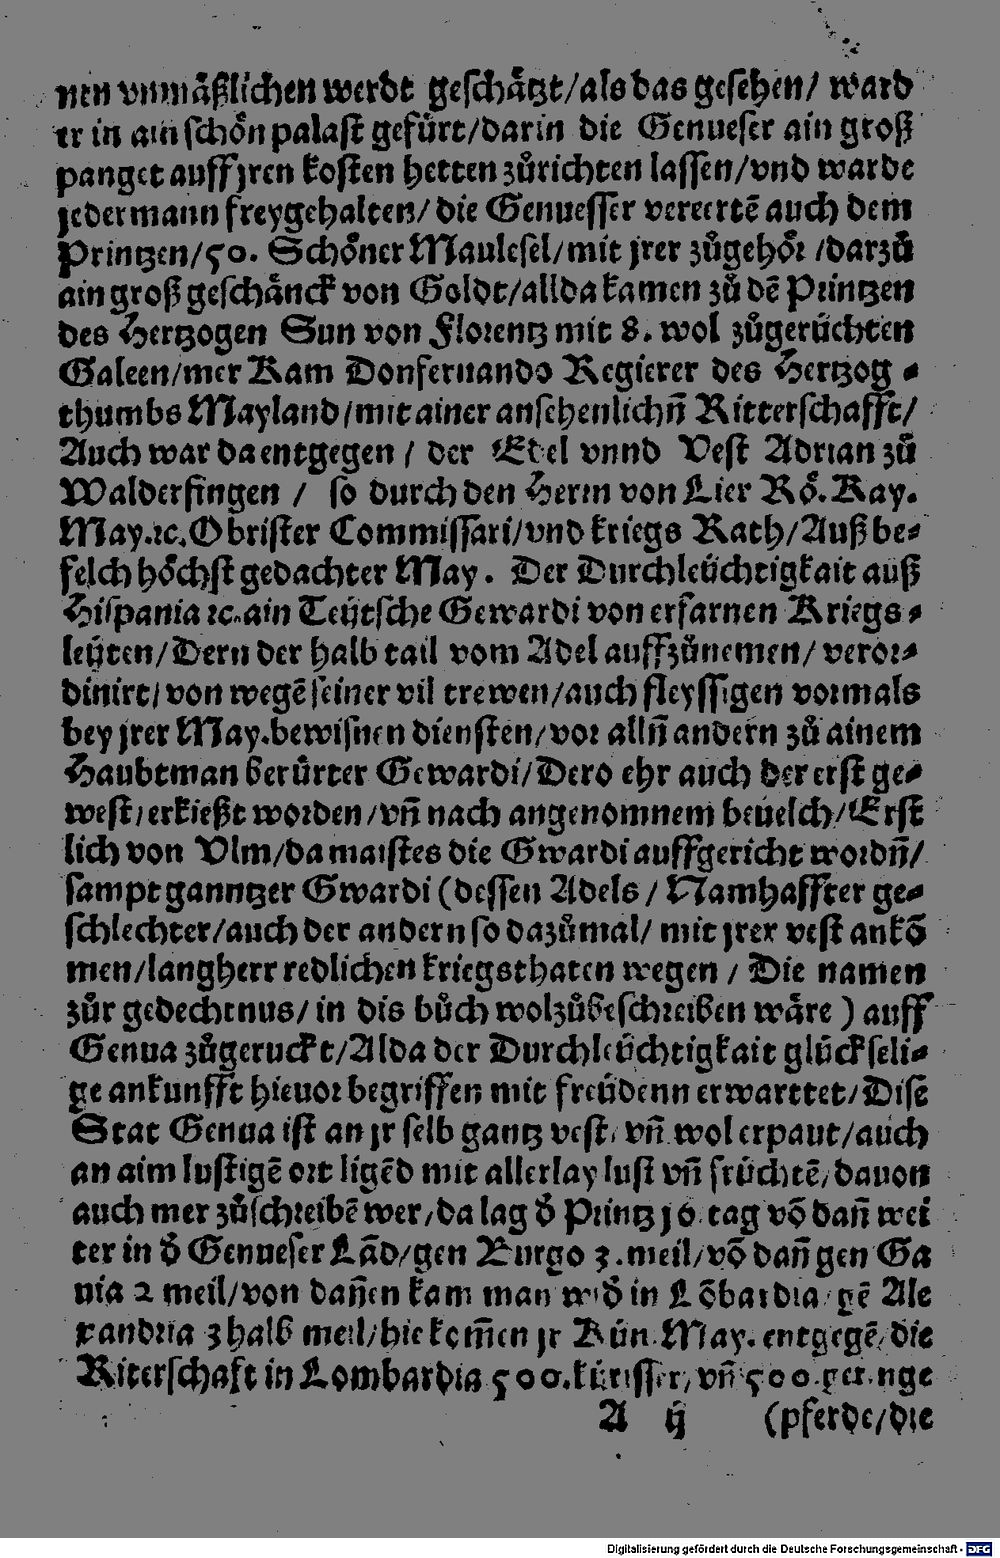 nen vnmäßlichen werdt geschätzt/als das gesehen/ ward
er in ain schön palast gefürt/darin die Genueser ain groß
panget auff jren kosten hetten zůrichten lassen/vnd warde
jedermann freygehalten/ die Genuesser vereertē auch dem
Printzen/50. Schöner Maulesel/mit jrer zůgehör /darzů
ain groß geschänck von Goldt/allda kamen zů dē Printzen
des Hertzogen Sun von Florentz mit 8. wol zůgerüchten
Galeen/mer Kam Donfernando Regierer des Hertzog ⸗
thumbs Mayland/mit ainer ansehenlichñ Ritterschafft/
Auch war da entgegen / der Edel vnnd Vest Adrian zů
Walderfingen / so durch den Herrn von Lier Rö. Kay.
May.ꝛc. Obrister Commissari/vnd kriegs Rath/Auß be⸗
felch höchst gedachter May. Der Durchleüchtigkait auß
Hispania ꝛc. ain Teütsche Gewardi von erfarnen Kriegs⸗
leüten/Dern der halb tail vom Adel auffzůnemen/ veror⸗
dinirt/ von wegē seiner vil trewen/auch fleyssigen vormals
bey jrer May. bewisnen diensten/vor allñ andern zů ainem
Haubtman berürter Gewardi/Dero ehr auch der erst ge⸗
west/erkießt worden/vñ nach angenomnem beuelch/Erst
lich von Vlm/da maistes die Gwardi auffgericht wordñ/
sampt ganntzer Gwardi (dessen Adels / Namhaffter ge⸗
schlechter/auch der andern so dazůmal/ mit jrer vest ankō
men/langherr redlichen kriegsthaten wegen / Die namen
zůr gedechtnus/ in dis bůch wolzůbeschreiben wäre ) auff
Genua zůgeruckt/Alda der Durchleüchtigkait glückseli⸗
ge ankunfft hieuor begriffen mit freüdenn erwarttet/Dise
Stat Genua ist an jr selb gantz vest, vñ wol erpaut/auch
an aim lustigē ort ligēd mit allerlay lust vñ früchtē/dauon
auch mer zůschreibē wer/da lag d̄ Printz 16 tag vō dañ wei
ter in d̄ Genueser Lād/gen Burgo 3. meil/vō dañ gen Ga
uia 2 meil/von dañen kam man wid̄ in Lōbardia/gē Ale
xandria 3 halb meil/hie kom̄en jr Kün. May. entgegē/die
Riterschaft in Lombardia 500. kürisser/ vñ 500 geringe
A ij (pferde/die
Digitalisierung gefördert durch die Deutsche Forschungsgemeinschaft - DFG